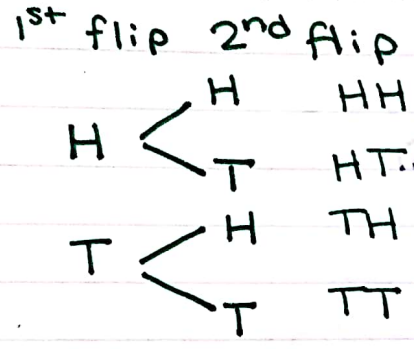 1st flip 2nd flip
H HH
H
T HT.
H TH
T
T TT